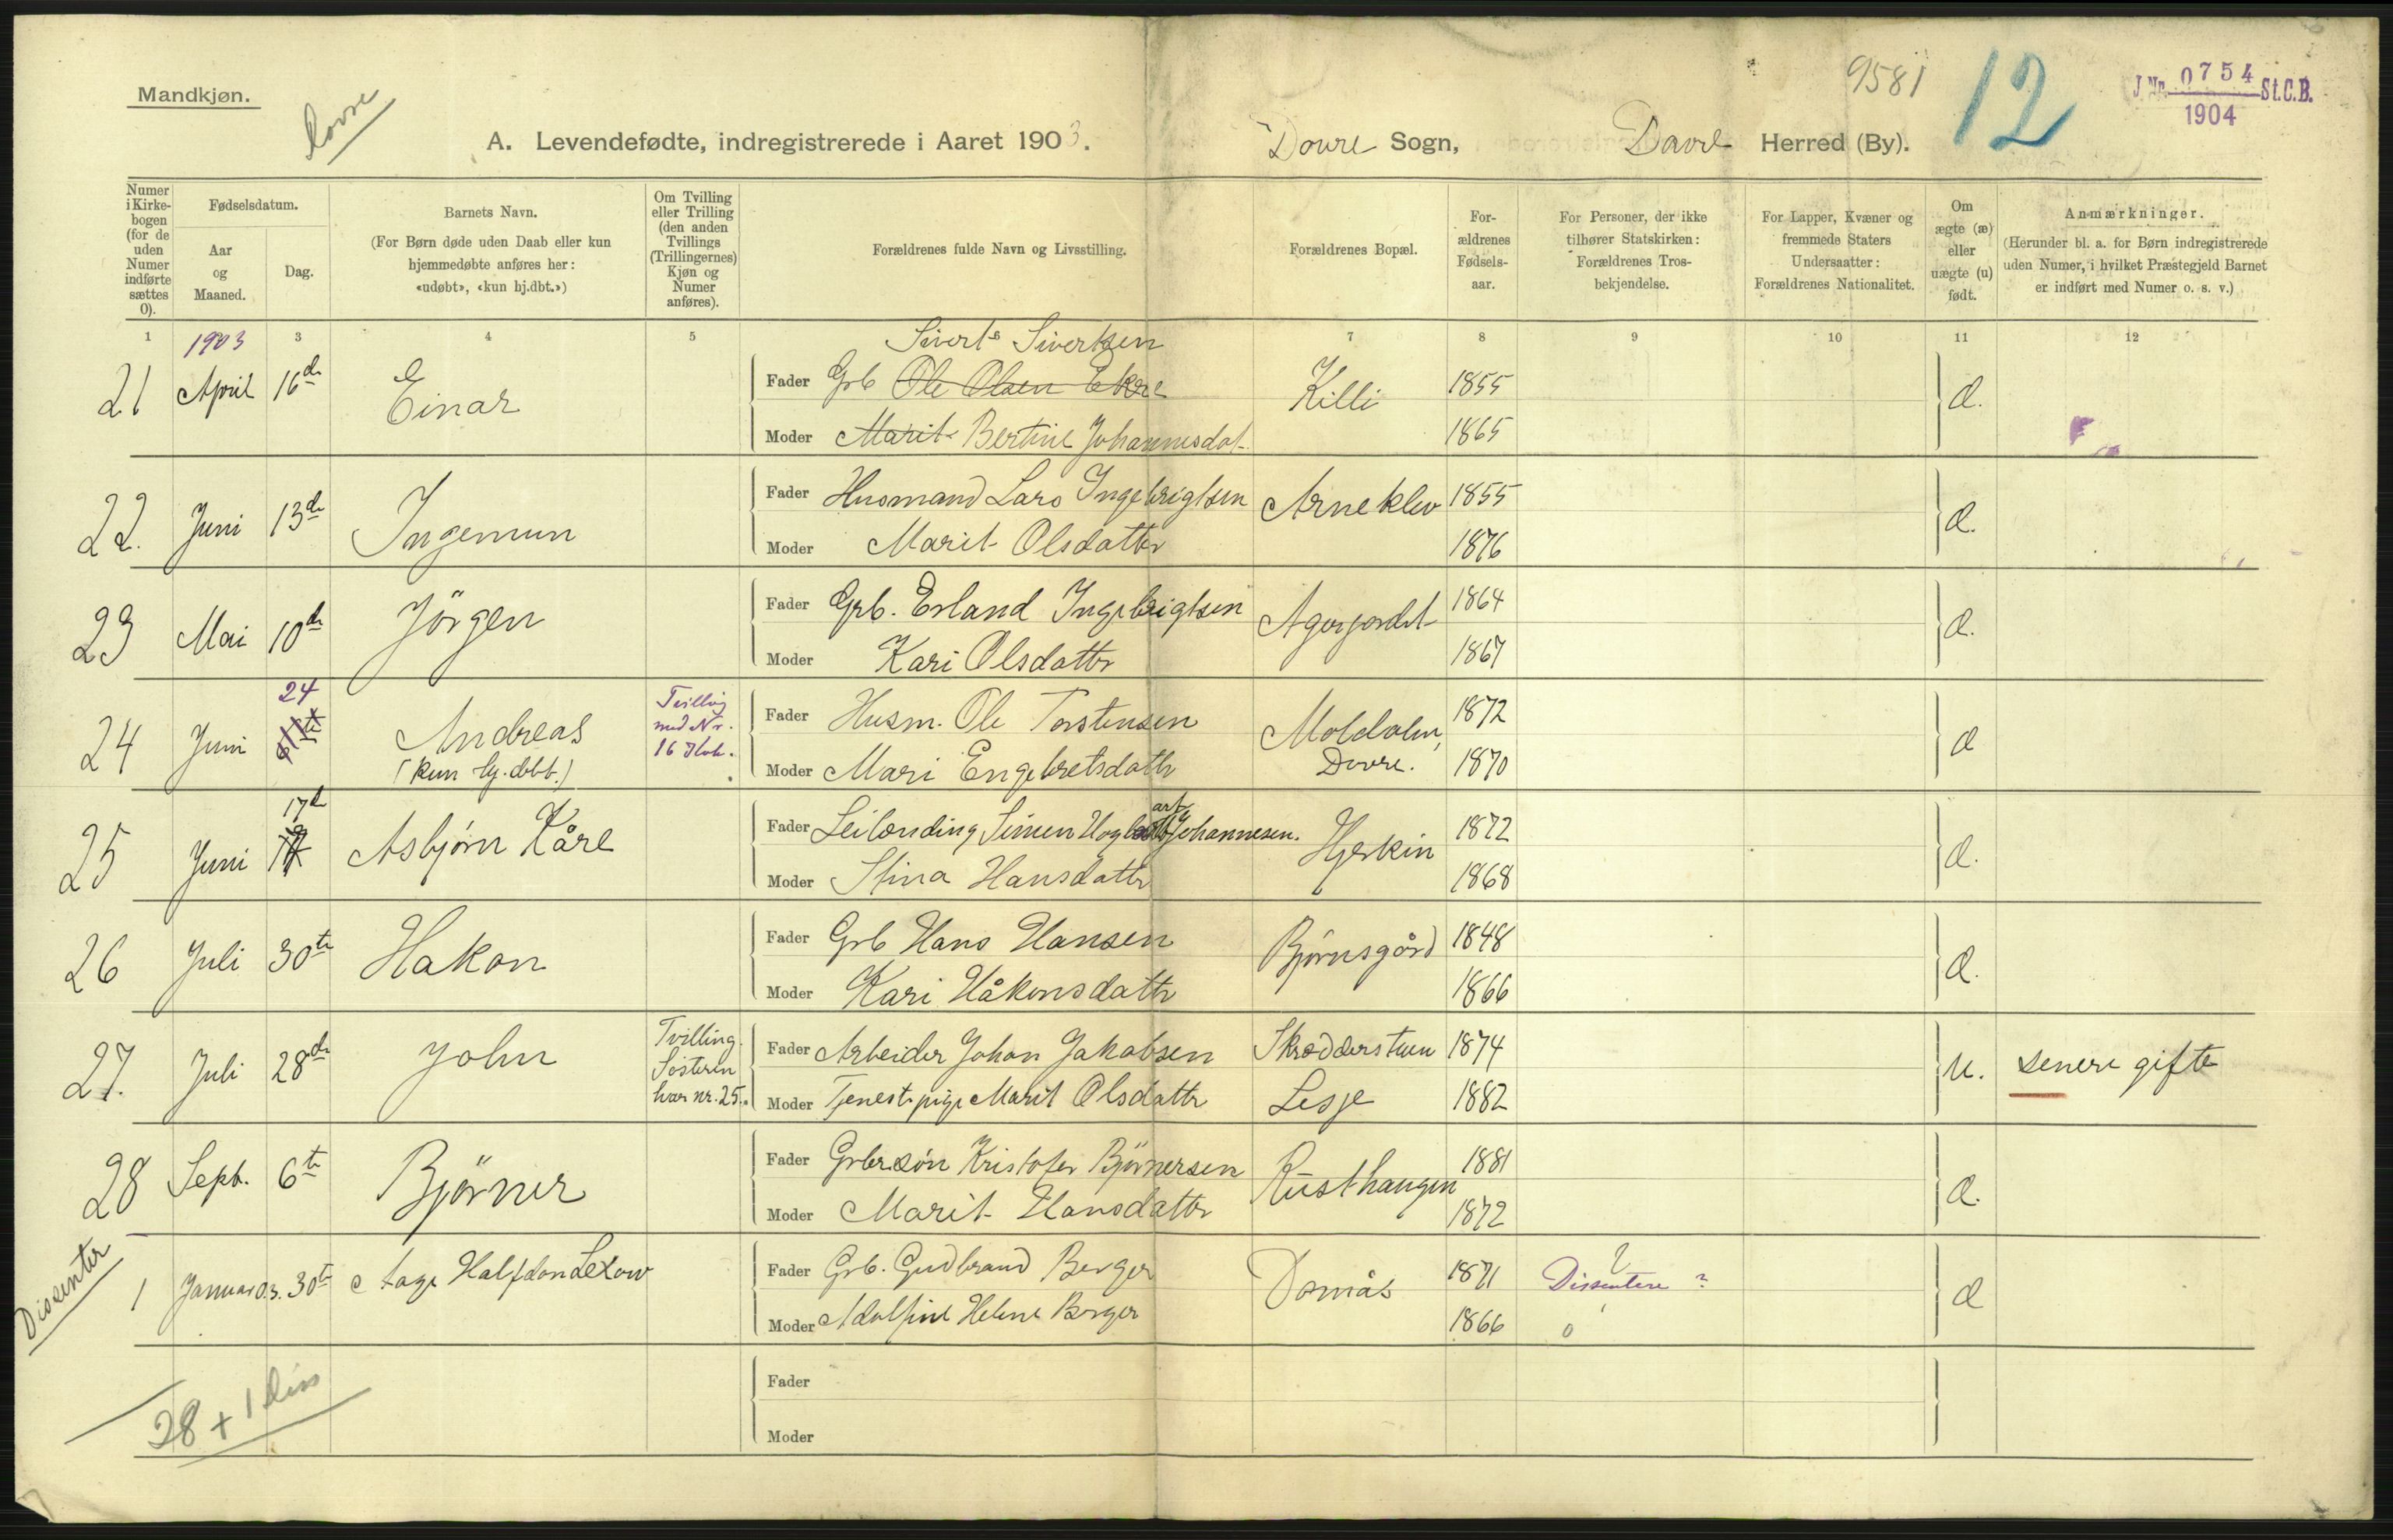 Mandkjøn.
Dovre
9581
12
J.Nr. 0754 St.C.B.
1904
A. Levendefødte, indregistrerede i Aaret 1903. Dovre Sogn, Dovre Herred (By).
Numer i Kirkebogen (for de uden Numer indførte sættes 0).
Fødselsdatum.
Aar og Maaned.
Dag.
Barnets Navn.
(For Børn døde uden Daab eller kun hjemmedøbte anføres her: «udøbt», «kun hj.dbt.»)
Om Tvilling eller Trilling (den anden Tvillings (Trillingernes) Kjøn og Numer anføres).
Forældrenes fulde Navn og Livsstilling.
Forældrenes Bopæl.
Forældrenes Fødselsaar.
For Personer, der ikke tilhører Statskirken: Forældrenes Trosbekjendelse.
For Lapper, Kvæner og fremmede Staters Undersaatter: Forældrenes Nationalitet.
Om ægte (æ) eller uægte (u) født.
Anmærkninger.
(Herunder bl. a. for Børn indregistrerede uden Numer, i hvilket Præstegjeld Barnet er indført med Numer o. s. v.)
1 3 4 5 7 8 9 10 11 12
1903
Sivert Sivertsen
21 April 16de Einar Fader Grb Ole Olsen Ekre Killi 1855 æ.
Moder Marit Bertine Johannesdat 1865
22. Juni 13de Ingemun Fader Husmand Lars Ingebrigtsen Arneklev 1855 æ.
Moder Marit Olsdatter 1876
23 Mai 10de Jörgen Fader Grb. Erland Ingebrigtsen Agerjordet 1864 æ.
Moder Kari Olsdatter 1867
24 Juni 24 11te Andreas (kun hj.dbt.) Tvilling med Nr. 16 Kvk. Fader Husm. Ole Torstensen Moldalm, Dovre. 1872 æ
Moder Mari Engebretsdatter 1870
25 Juni 17de Asbjørn Kåre Fader Leilænding Simen Hagbart Johannesen. Hjerkin 1872 æ.
Moder Stina Hansdatter 1868
26 Juli 30te Hakon Fader Grb Hans Hansen Bjørnsgård 1848 æ.
Moder Kari Håkonsdatter 1866
27. Juli 28de John Tvilling. Søsteren har nr. 25. Fader Arbeider Johan Jakobsen Skrædderstuen 1874 u. senere gifte
Moder Tjenestepige Marit Olsdatter Lesje 1882
28 Sept. 6te Björner Fader Grbersön Kristofer Björnersen Rusthaugen 1881 æ.
Moder Marit Hansdatter 1872
Dissenter
1 Januar 03. 30te Aage Halfdan Lexow Fader Grb. Gudbrand Berger Domås 1871 Dissentere ? æ
Moder Adolfine Helene Berger 1866
Fader
Moder
28 + 1 diss